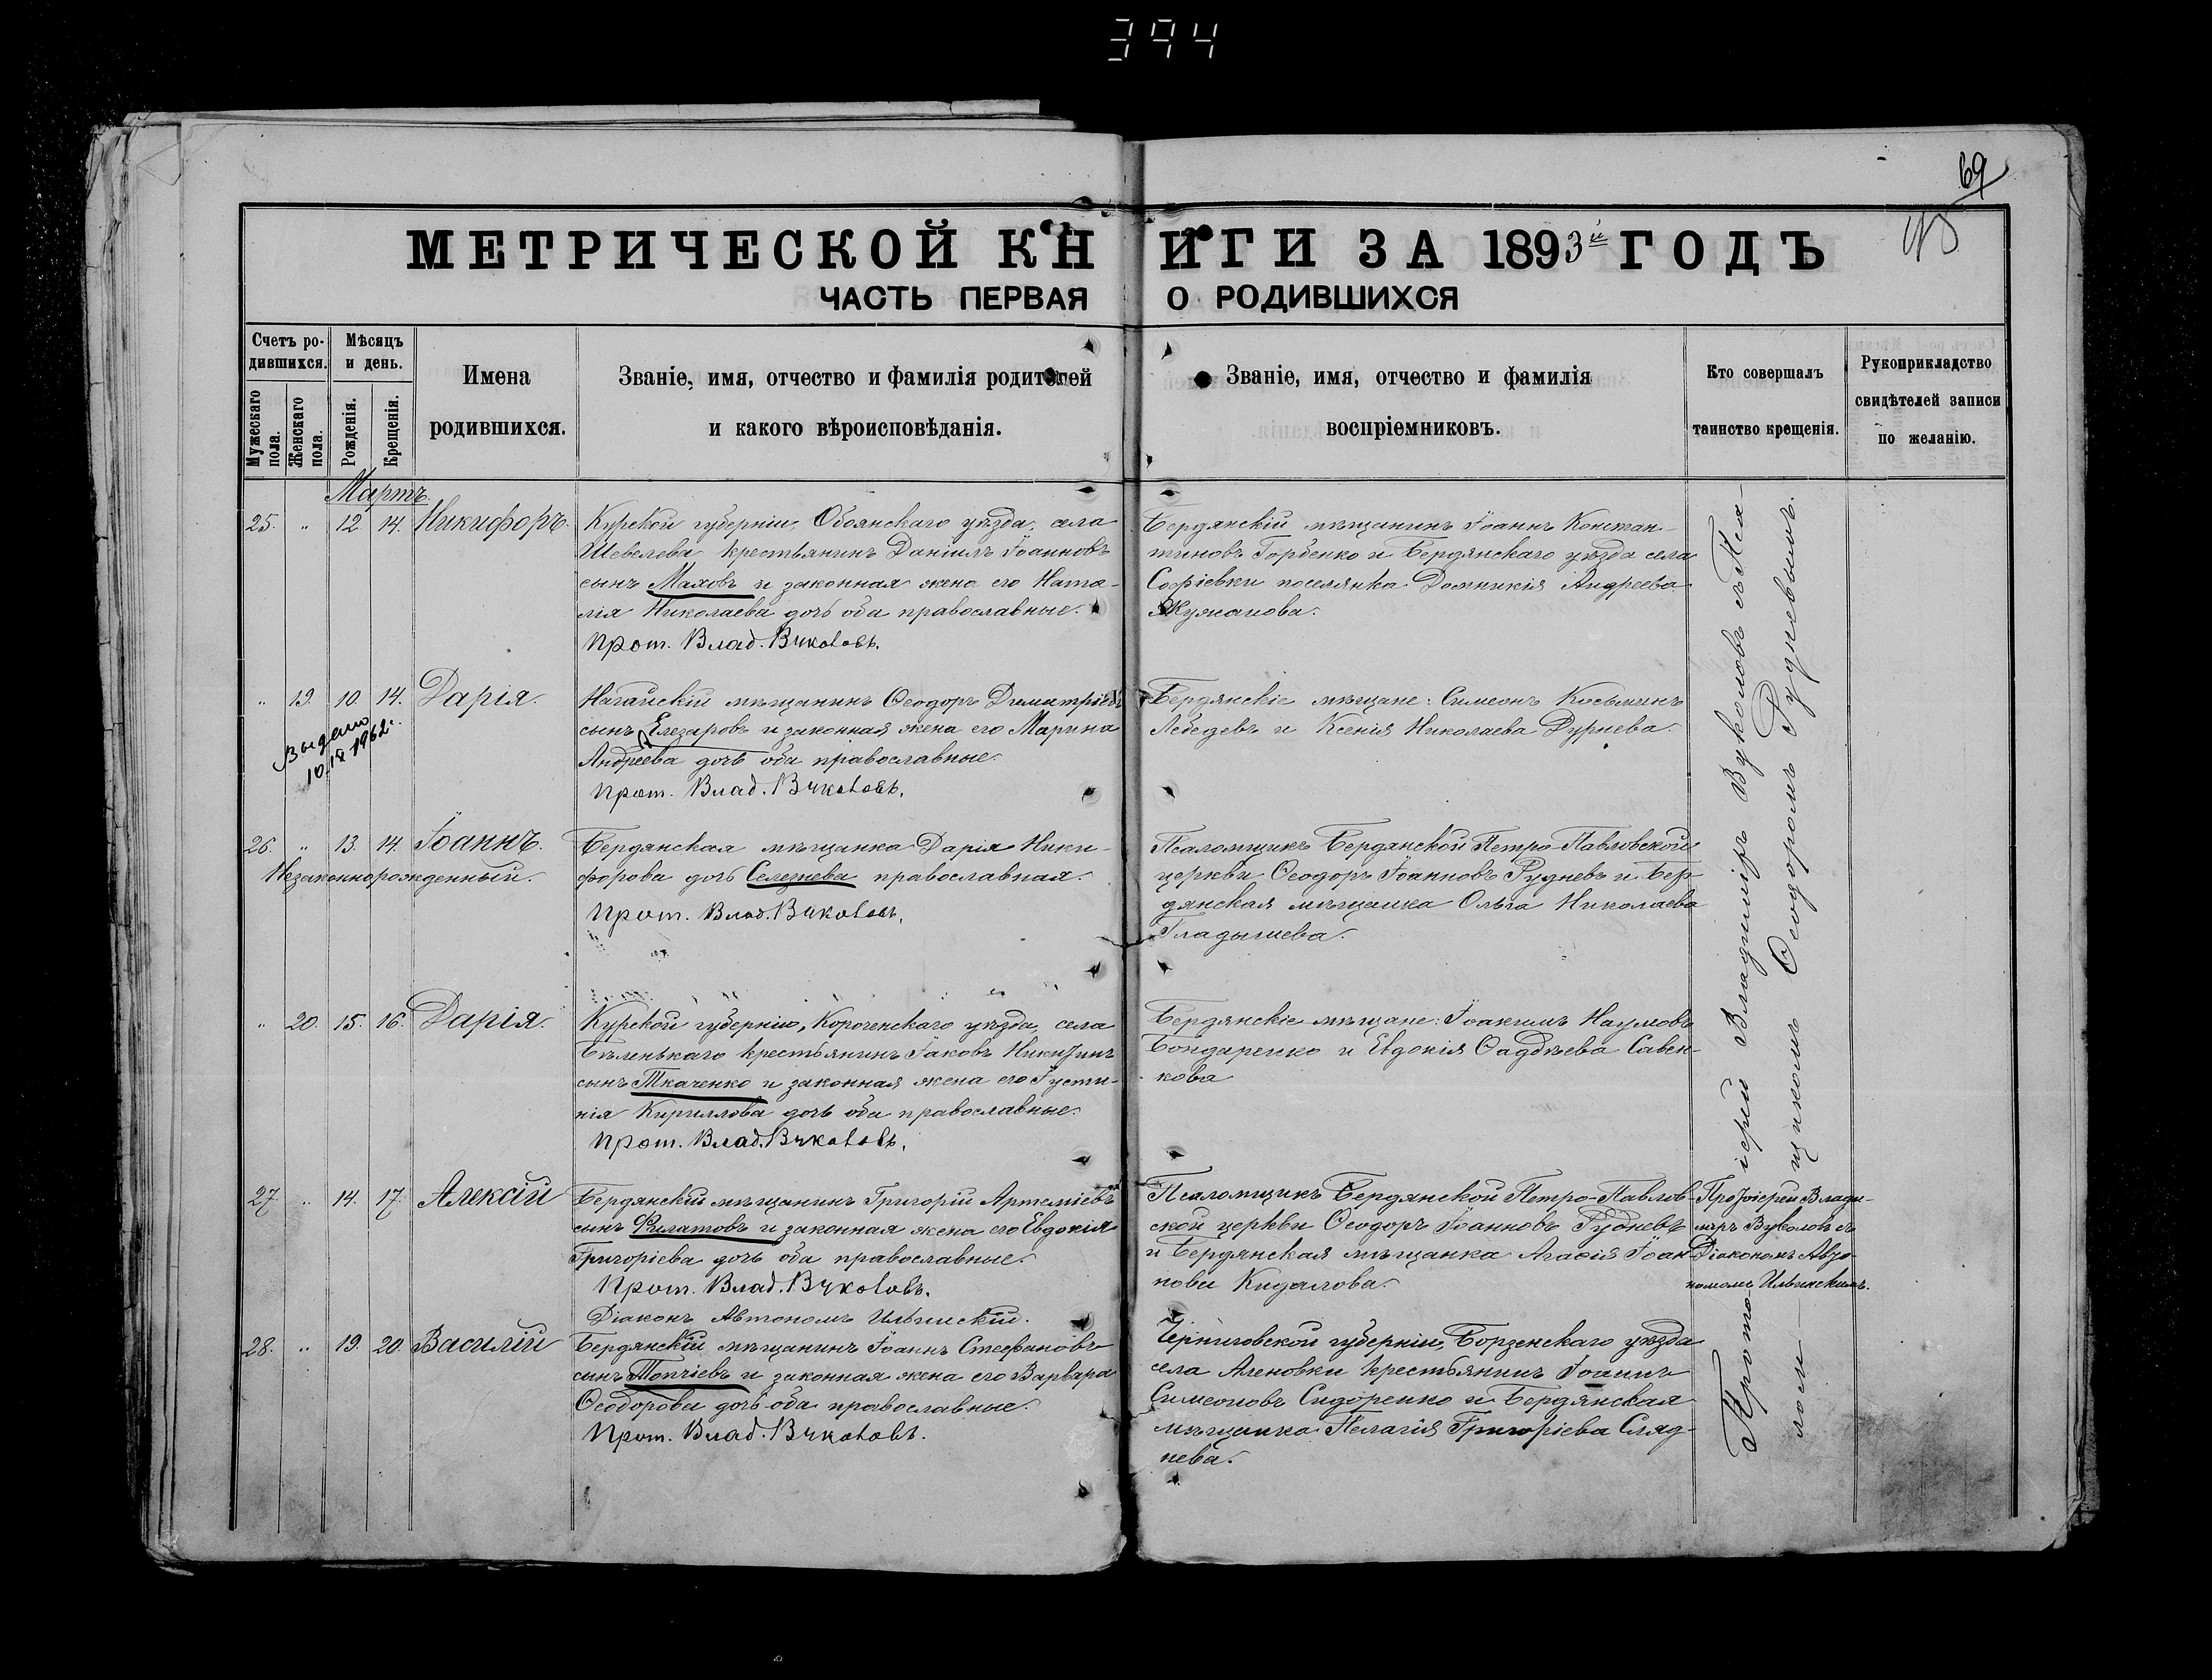 394
69
МЕТРИЧЕСКОЙ КНИГИ ЗА 1893й ГОДЪ
ЧАСТЬ ПЕРВАЯ О РОДИВШИХСЯ
Счетъ родившихся.
Мужескаго пола.
Женскаго пола.
Мѣсяцъ и день.
Рожденія.
Крещенія.
Имена родившихся.
Званіе, имя, отчество и фамилія родителей
и какого вѣроисповѣданія.
Званіе, имя, отчество и фамилія
воспріемниковъ.
Кто совершалъ
таинство крещенія.
Рукоприкладство
свидѣтелей записи
по желанію.
Мартъ.
25. " 12. 14. Никифоръ.
Курской губерніи, Обоянскаго уѣзда, села
Шевелева крестьянинъ Даніилъ Іоанновъ
сынъ Маховъ и законная жена его Ната-
лія Николаева дочь оба православные.
Прот. Влад. Вуколовъ.
Бердянскій мѣщанинъ Іоаннъ Констан-
тиновъ Горбенко и Бердянскаго уѣзда села
Софіевки поселянка Домникія Андреева
" 19. 10. 14. Дарія.
Выдано
1962г.
Ногайскій мѣщанинъ Ѳеодоръ Димитріевъ
сынъ Елезаровъ и законная жена его Марина
Андреева дочь оба православные.
Прот. Влад. Вуколовъ.
Бердянскіе мѣщане: Симеонъ Косьминъ
Лебедевъ и Ксенія Николаева Дурнева.
26. " 13. 14. Іоаннъ.
Незаконнорожденный.
Бердянская мѣщанка Дарія Ники-
форова дочь Селезнева православная.
Прот. Влад. Вуколовъ.
Псаломщикъ Бердянской Петро-Павловской
церкви Ѳеодоръ Іоанновъ Рудневъ и Бер-
дянская мѣщанка Ольга Николаева
Гладышева.
" 20. 15. 16. Дарія.
Курской губерніи, Короченскаго уѣзда, села
Бѣленькаго крестьянинъ Іаковъ Никитинъ
сынъ Ткаченко и законная жена его Іусти-
нія Кириллова дочь оба православные.
Прот. Влад. Вуколовъ.
Бердянскіе мѣщане: Іоакимъ Наумовъ
Бондаренко и Евдокія Ѳаддѣева Савен-
кова
27. " 14. 17. Алексій
Бердянскій мѣщанинъ Григорій Артеміевъ
сынъ Филатовъ и законная жена его Евдокія
Григоріева дочь оба православные.
Прот. Влад. Вуколовъ.
Діаконъ Автономъ Ильинскій.
Псаломщикъ Бердянской Петро-Павлов-
ской церкви Ѳеодоръ Іоанновъ Рудневъ
и Бердянская мѣщанка Агаѳія Іоан-
нова Кидалова.
Протоіерей Влади-
міръ Вуколовъ съ
Діакономъ Авто-
номомъ Ильинскимъ.
28. " 19. 20. Василій
Бердянскій мѣщанинъ Іоаннъ Стефановъ
сынъ Топчіевъ и законная жена его Варвара
Ѳеодорова дочь оба православные.
Прот. Влад. Вуколовъ.
Черниговской губерніи, Борзенскаго уѣзда
села Аленовки крестьянинъ Іоаннъ
Симеоновъ Сидоренко и Бердянская
мѣщанка Пелагія Григоріева Сляд-
нева.
Протоіерей Владиміръ Вуколовъ съ Пса-
ломщикомъ Ѳеодоромъ Рудневымъ.